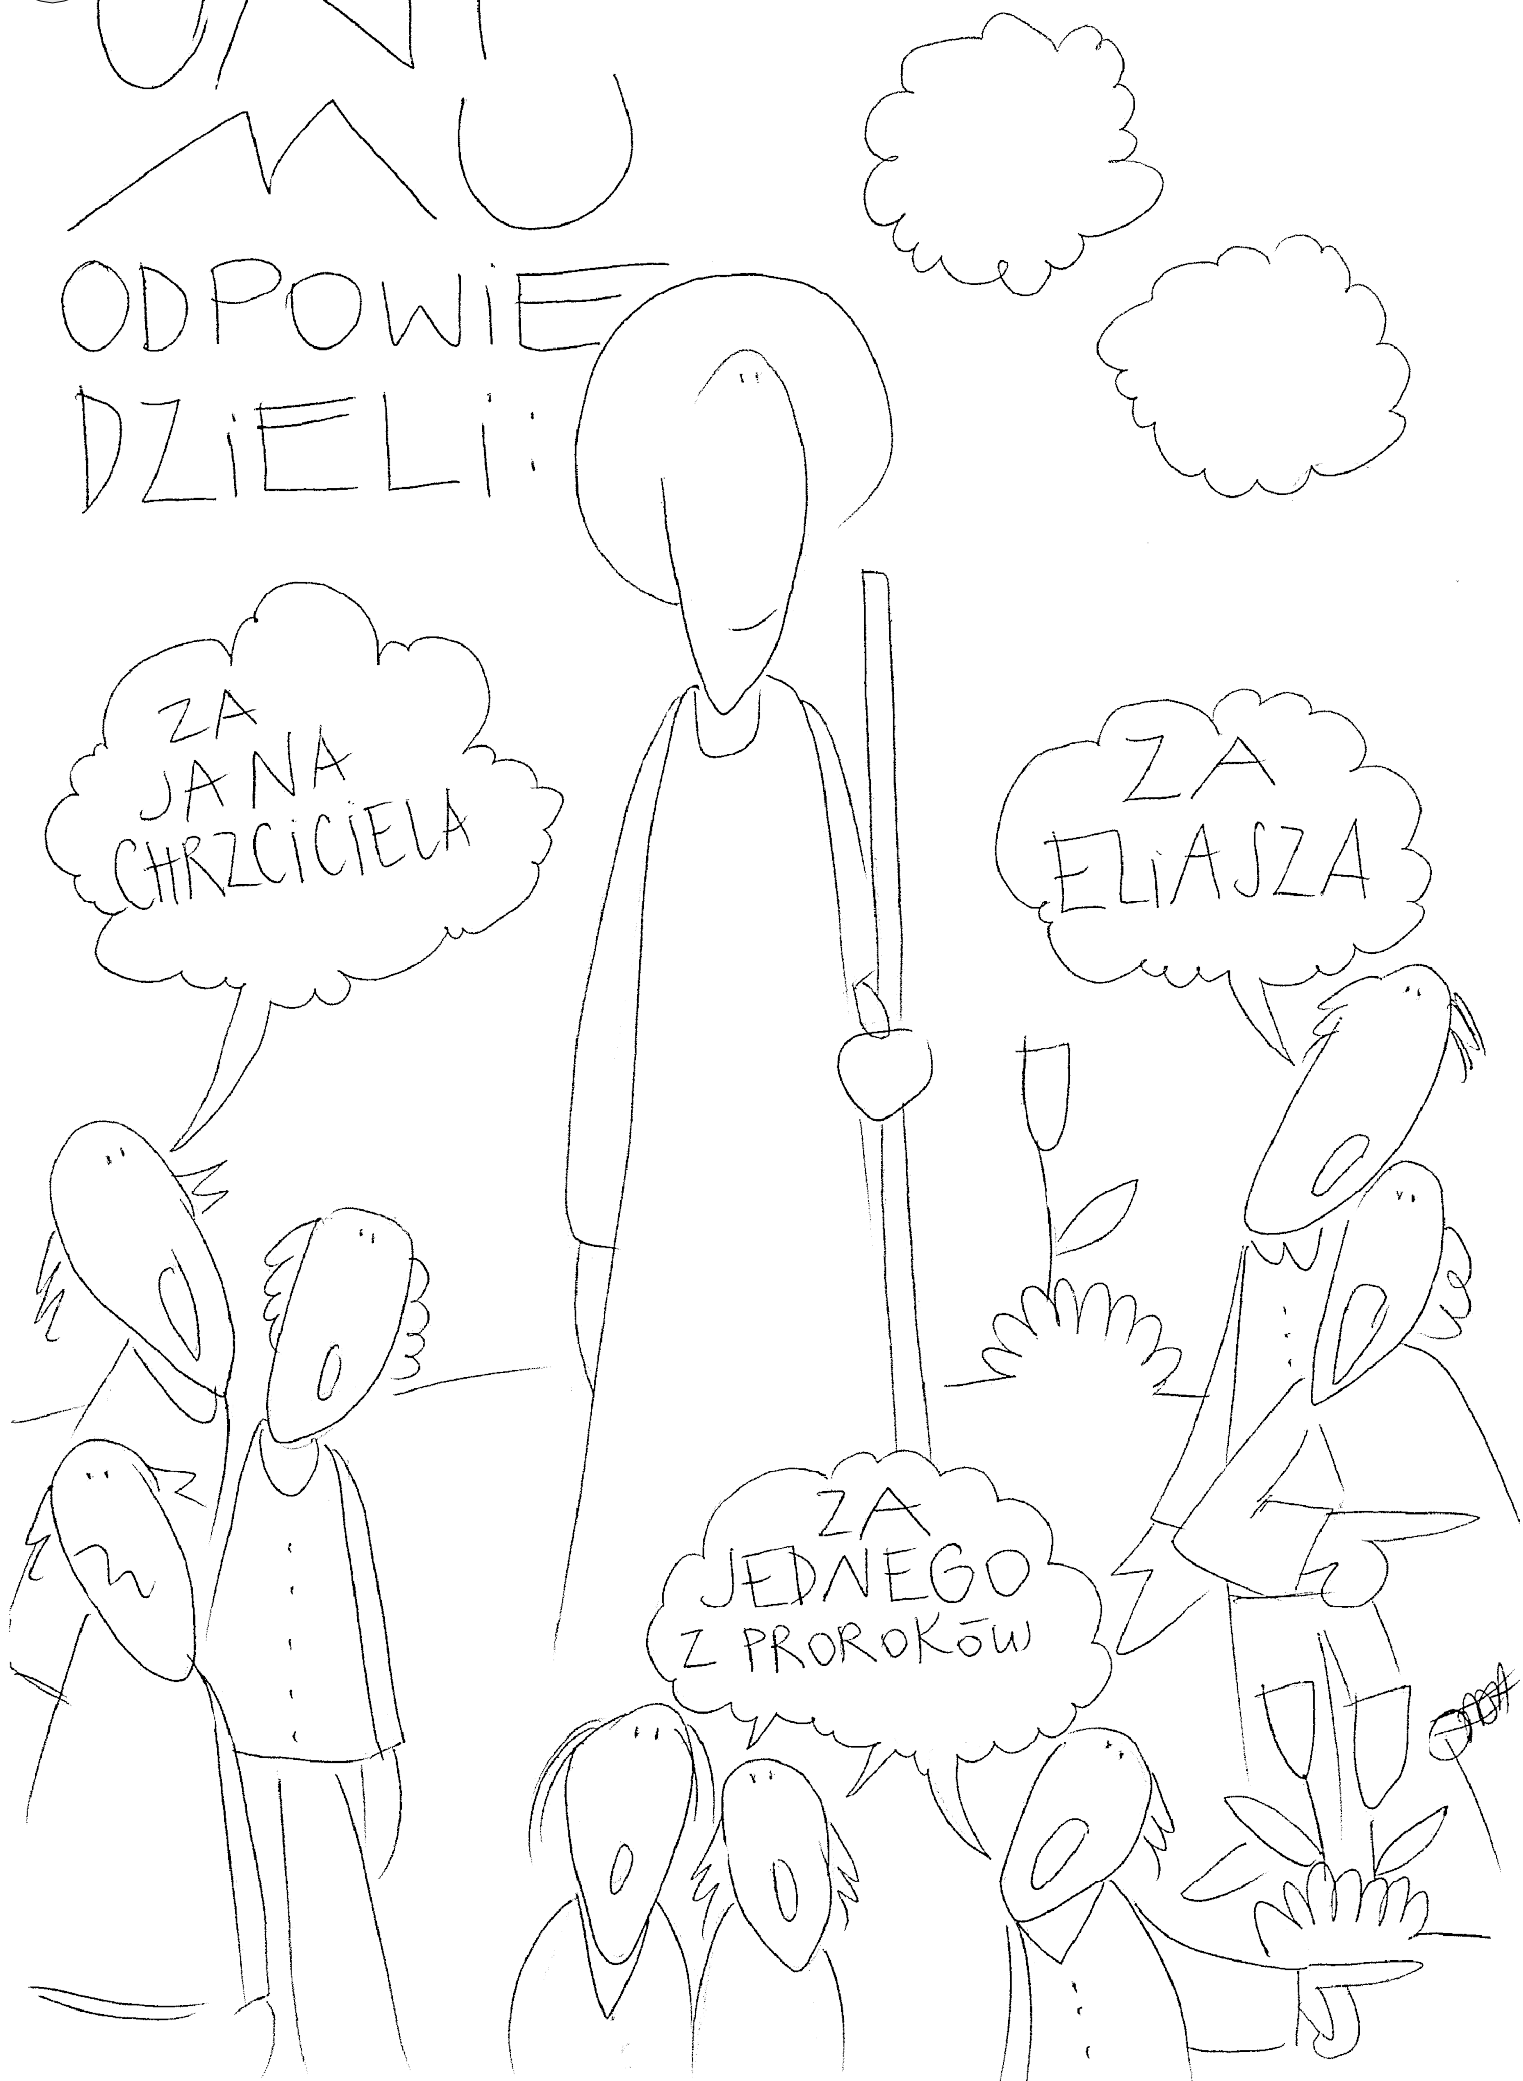 ONI
MU
ODPOWIE
DZiELi:
ZA
JANA
CHRZCiCiELA
ZA
ELiASZA
ZA
JEDNEGO
Z PROROKÓW